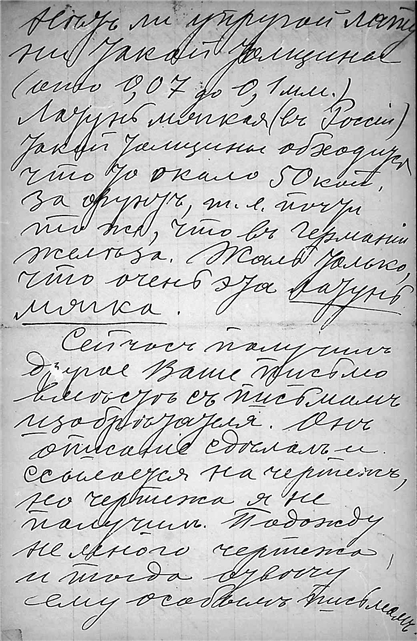 нѣтъ ли упругой лату
ни такой толщины
(отъ 0,07 до 0,1 мм.)
Латунь мягкая (въ Россіи)
такой толщины обходится
что то около 50 коп.
за фунтъ, т. е. почти
то же, что въ Германіи
желѣза. Жаль только,
что очень эта латунь
мягка.
Сейчасъ получилъ
другое Ваше письмо
вмѣстѣ съ письмомъ
изобрѣтателя. Онъ
описаніе сдѣлалъ и
ссылается на чертежъ,
но чертежа я не
получилъ. Подожду
немного чертежа
и тогда отвѣчу
ему особымъ письмомъ.